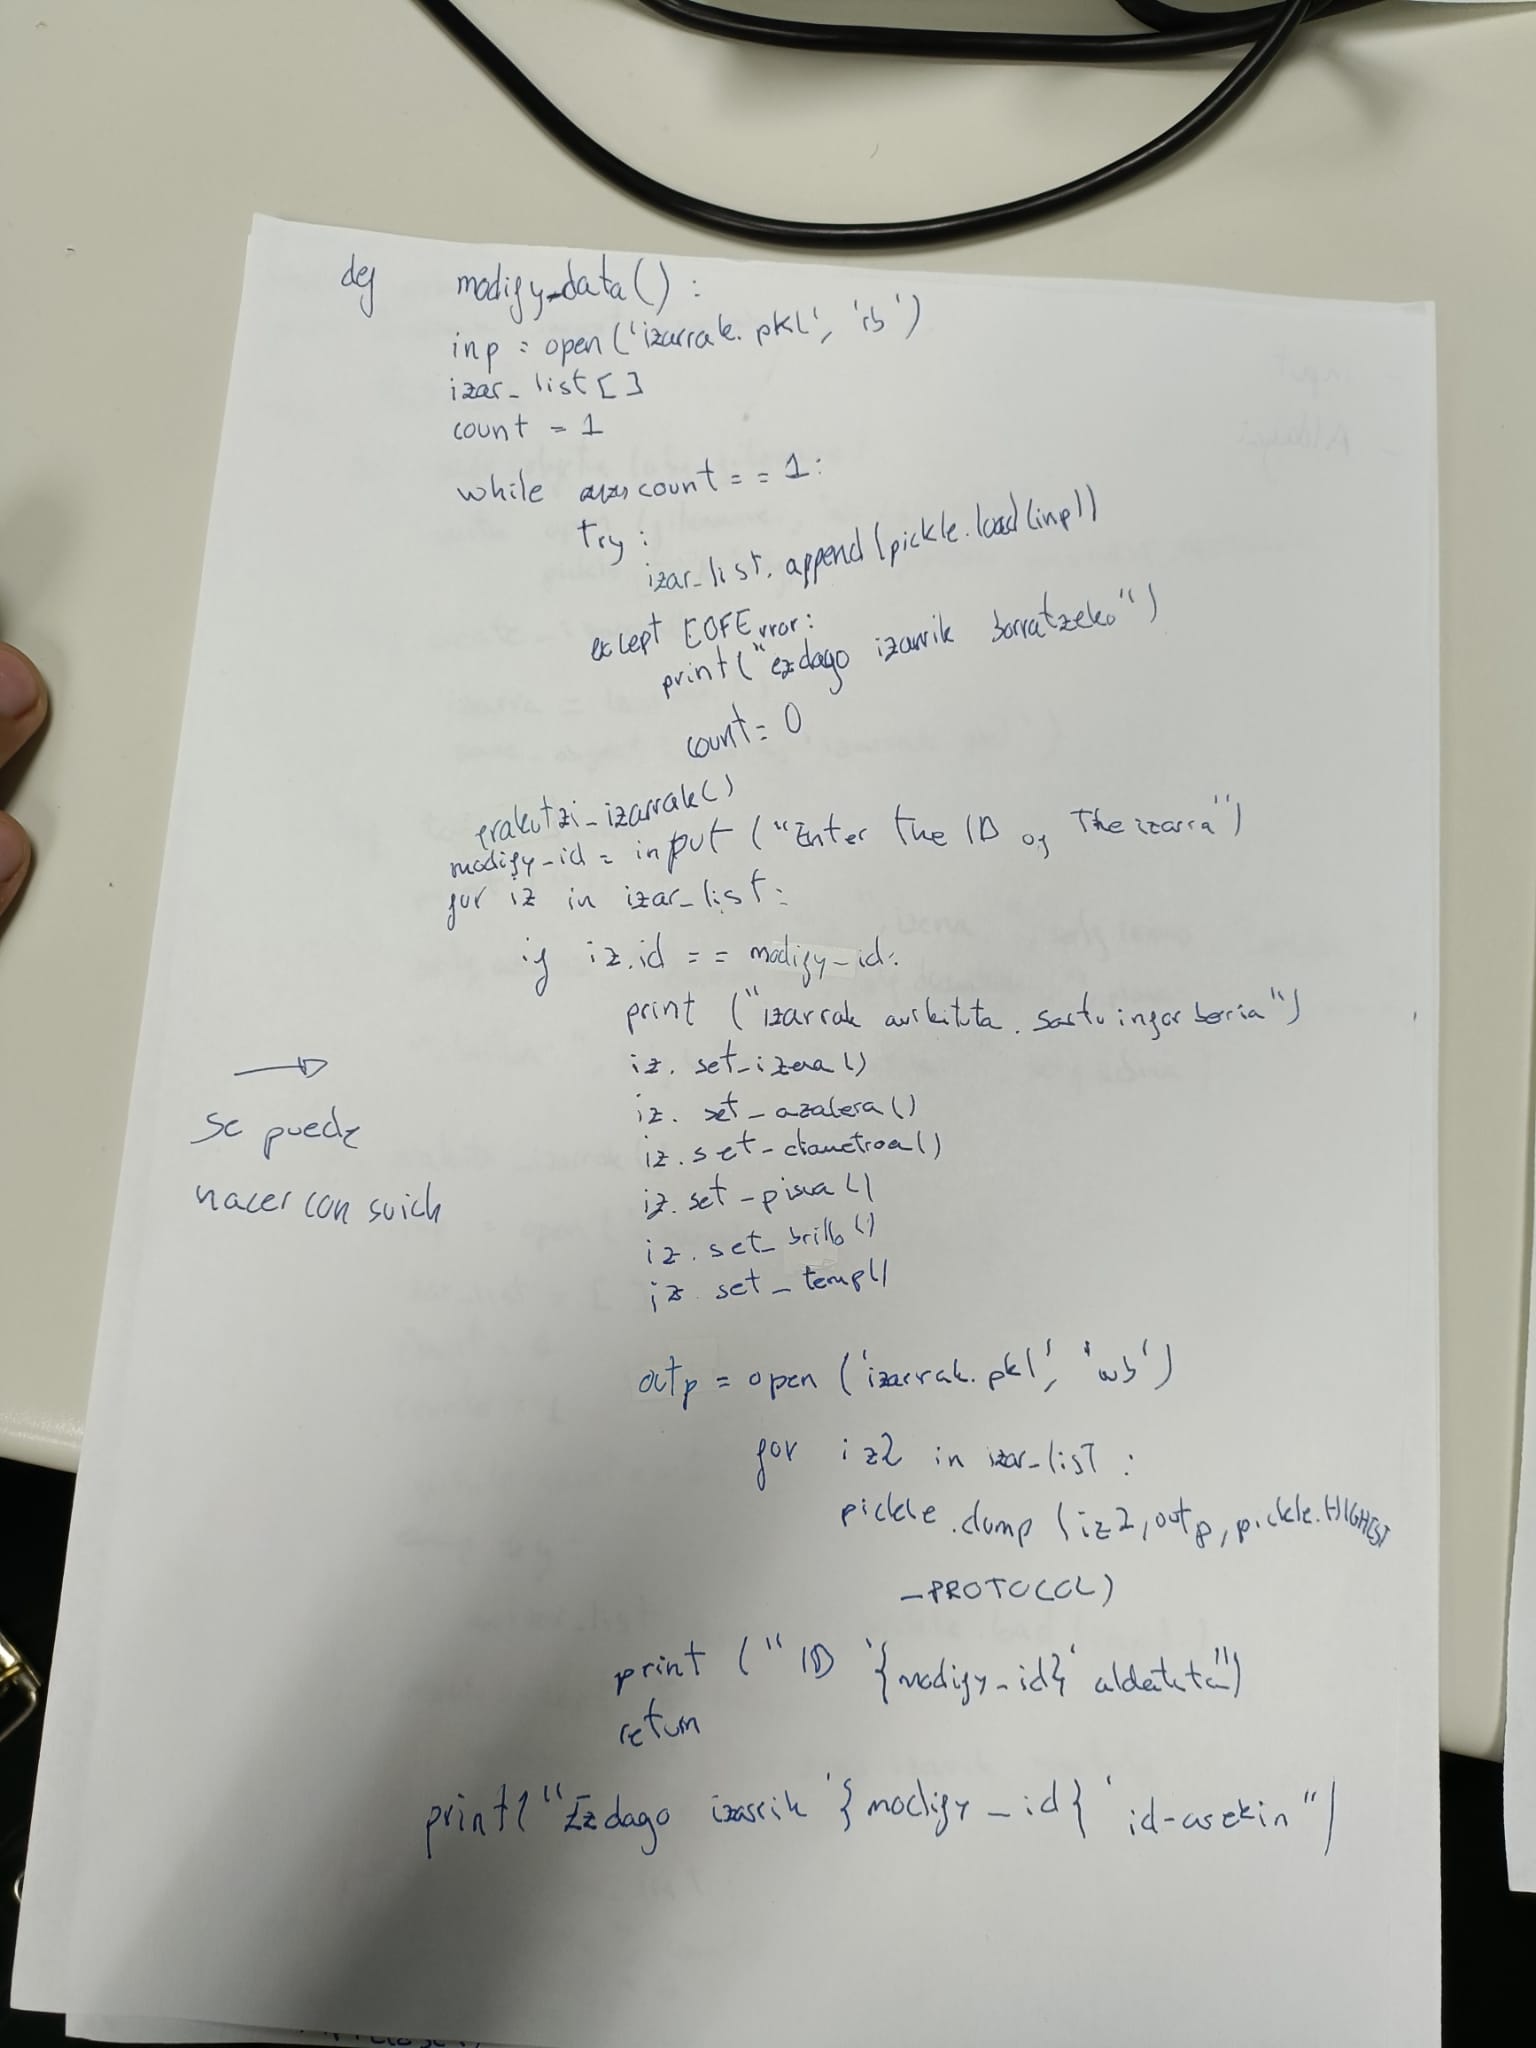 def modify_data():
inp = open('izarrak.pkl', 'rb')
izar_list[]
count = 1
while count == 1:
try:
izar_list.append(pickle.load(inp))
except EOFError:
print("ezdago izarrik borratzeko")
count = 0
erakutzi_izarrak()
modify_id = input ("Enter the ID of The izarra")
for iz in izar_list:
if iz.id == modify_id:
print ("izarrak aurkituta. Sartu infor berria")
iz. set_izena()
iz. set_azalera()
iz. set_diametroa()
iz. set_pisua()
iz. set_brillo()
iz. set_temp()
→
Se puede
hacer con suich
outp = open ('izarrak.pkl', 'wb')
for iz2 in izar_list:
pickle.dump (iz2, outp, pickle.HIGHEST
_PROTOCOL)
print ("ID '{modify_id}' aldatuta")
return
print("Ez dago izarrik '{modify_id}' id-arekin")